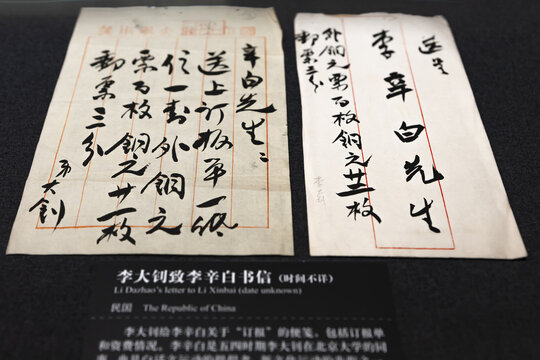 辛白先生：
送上订报单一纸
信一封外铜元
票百枚铜元廿一枚
邮票三分
弟大钊
送呈
李辛白先生
外铜元票百枚铜元廿一枚
邮票三分
李大钊致李辛白书信（时间不详）
Li Dazhao's letter to Li Xinbai (date unknown)
民国 The Republic of China
李大钊给李辛白关于“订报”的便笺，包括订报单
和资费情况。李辛白是五四时期李大钊在北京大学的同